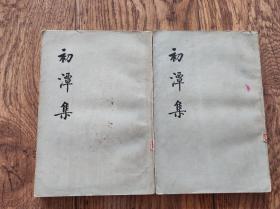 初潭集
初潭集